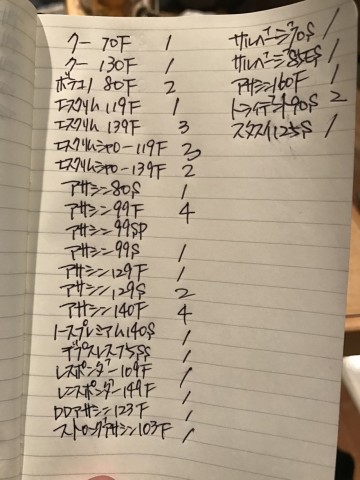 クー 70F 1
クー 130F 1
ボラコノ 80F 2
エスクリム 119F 1
エスクリム 139F 3
エスクリムシャロー 119F 3
エスクリムシャロー 139F 2
アサシン 80S 1
アサシン 99F 4
アサシン 99SP
アサシン 99S 1
アサシン 129F 1
アサシン 129S 2
アサシン 140F 4
ノースプレミアム 140S 1
デプスレス 75SS 1
レスポンダー 109F 1
レスポンダー 149F 1
DDアサシン 123F 1
ストロングアサシン 103F 1
サルベージ 70S 1
サルベージ 85ES 1
アサシン 160F 1
トライデント 90S 2
スタスイ 125S 1